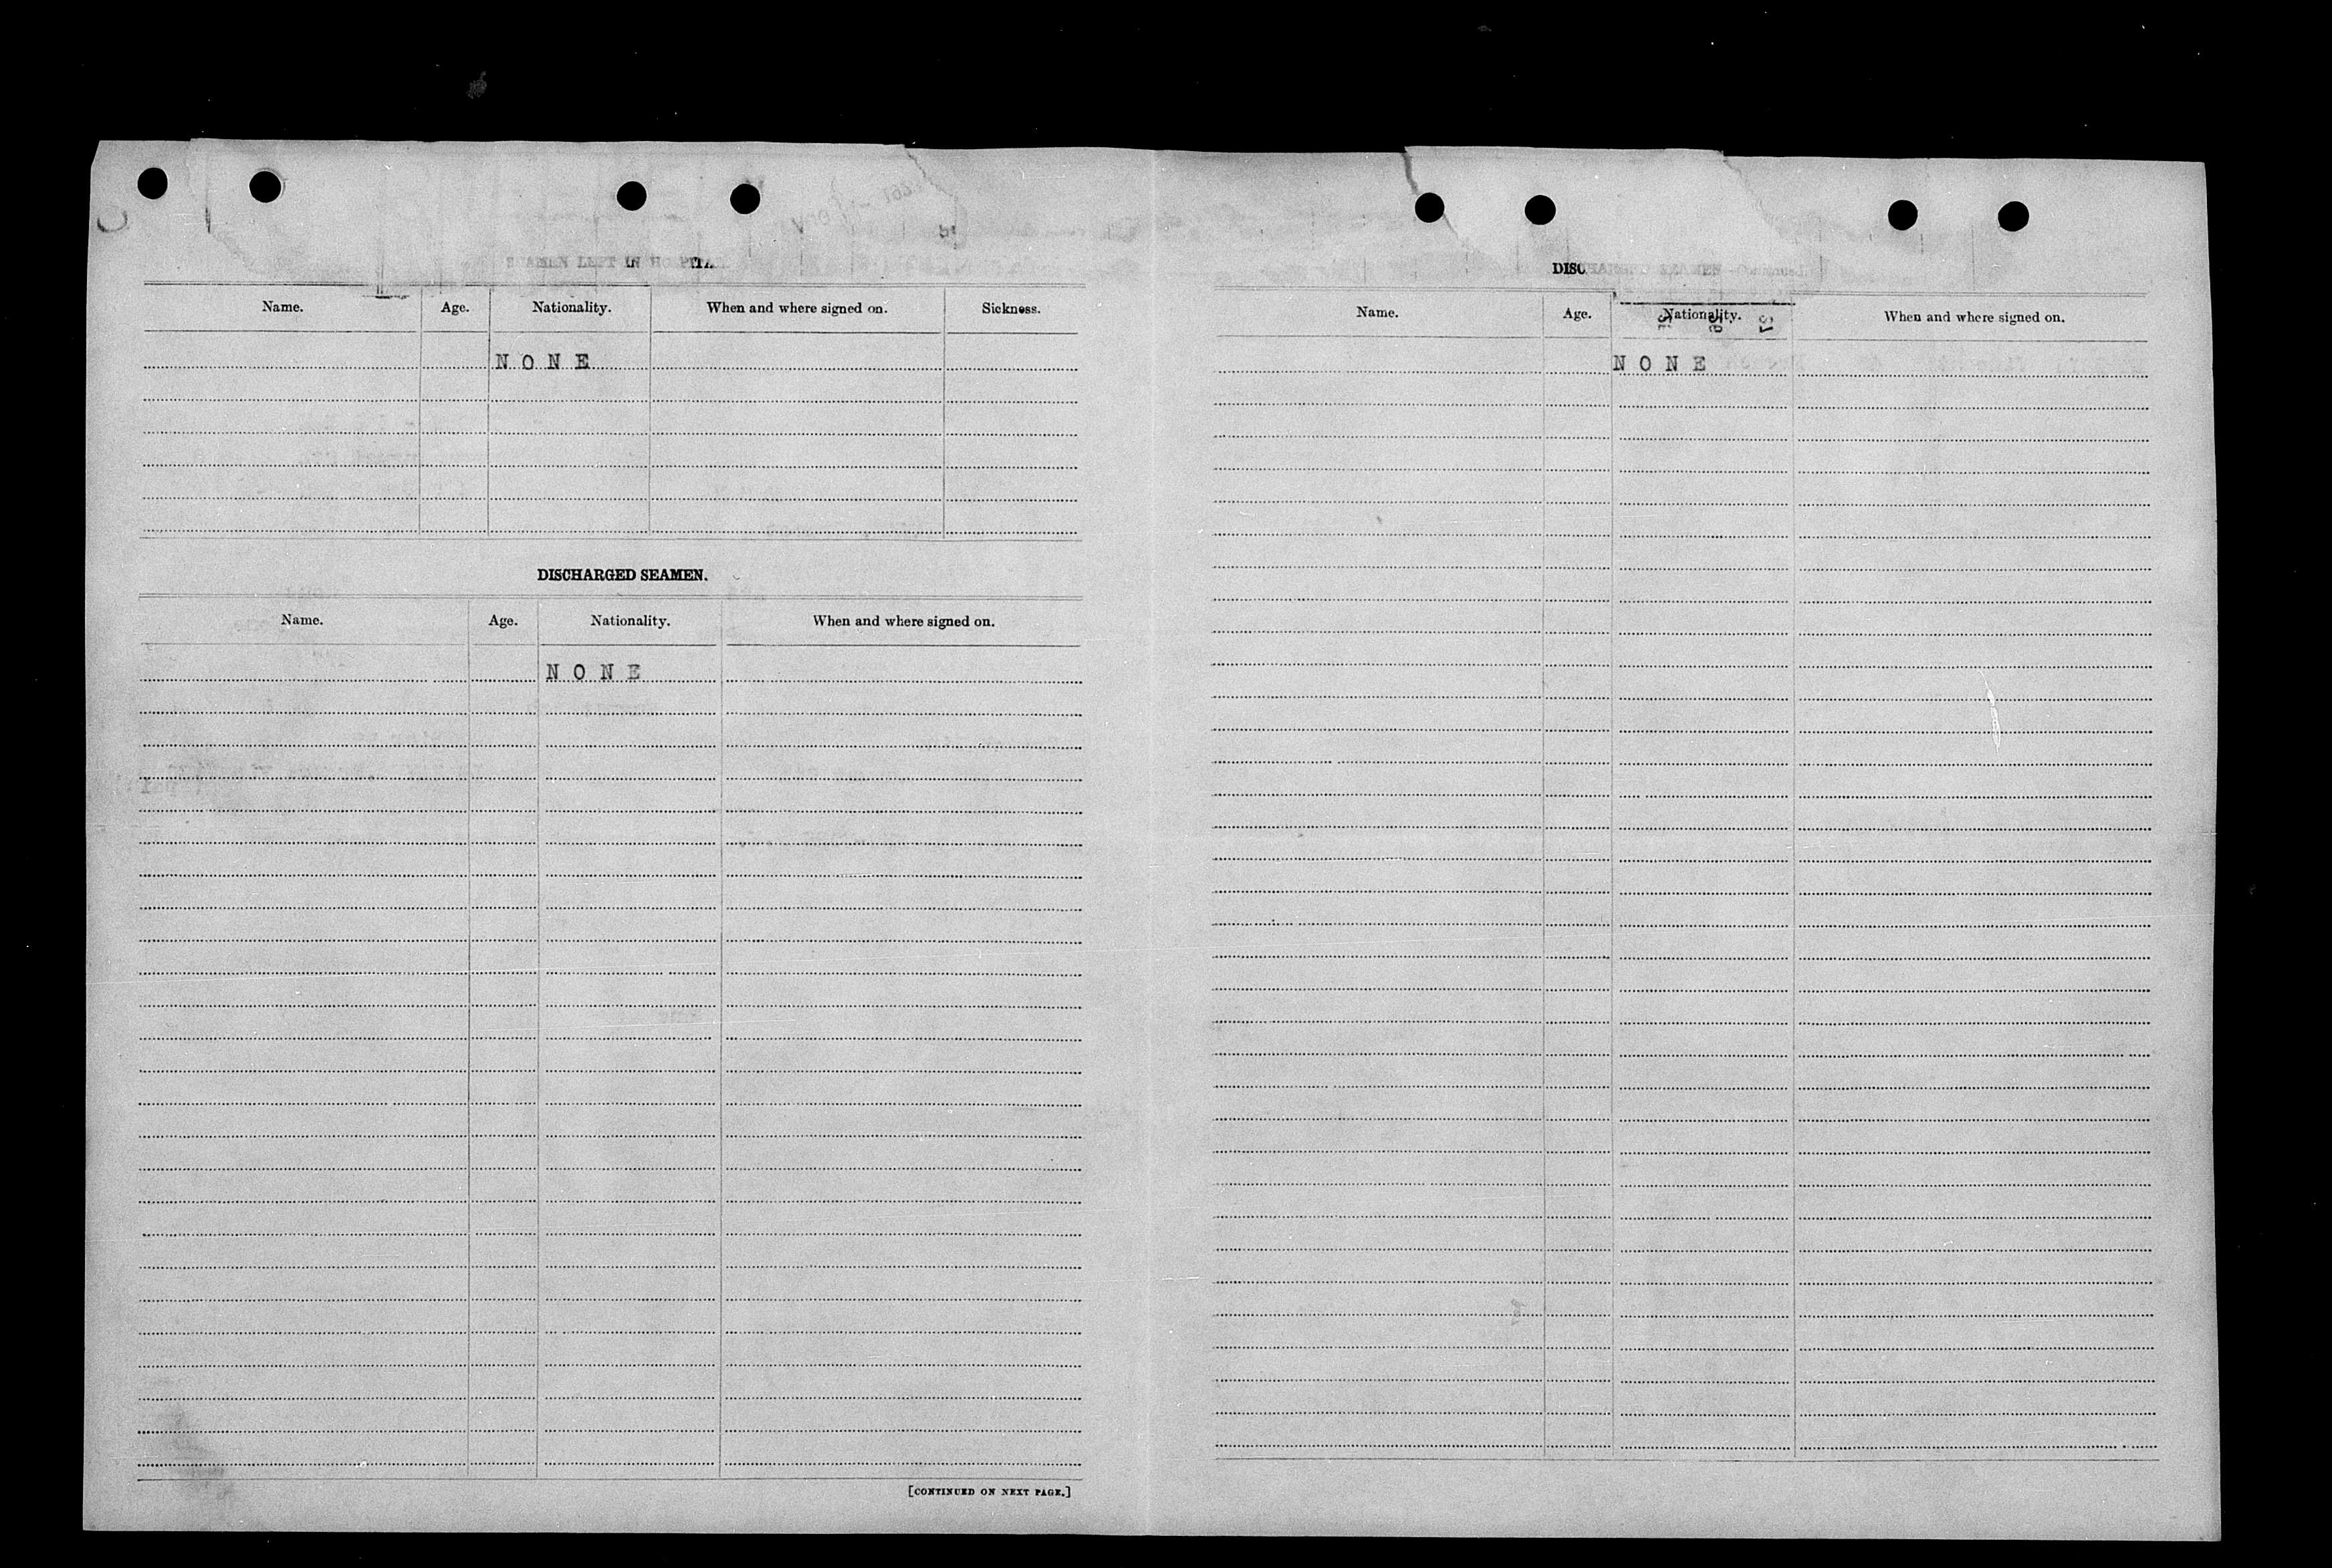 SEAMEN LEFT IN HOSPITAL
Name. Age. Nationality. When and where signed on. Sickness.
N O N E
DISCHARGED SEAMEN.
Name. Age. Nationality. When and where signed on.
N O N E
[CONTINUED ON NEXT PAGE.]
DISCHARGED SEAMEN—Continued.
Name. Age. Nationality. When and where signed on.
N O N E